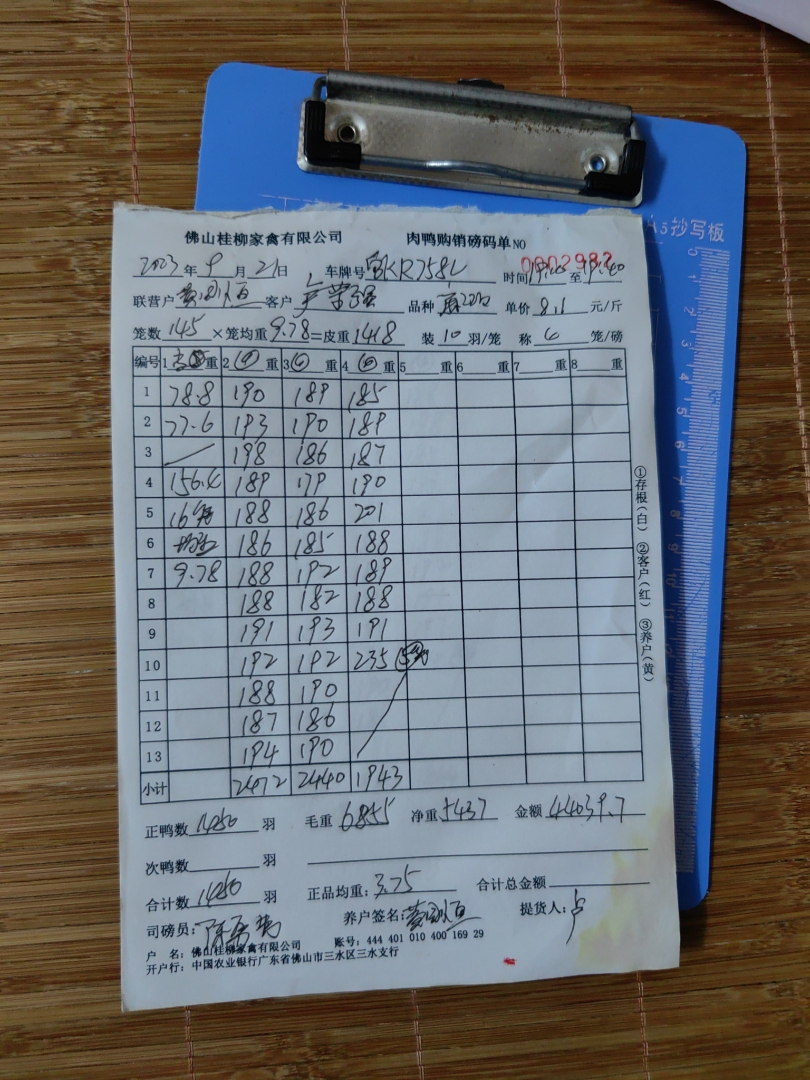 A5抄写板
佛山桂柳家禽有限公司 肉鸭购销磅码单NO 0002982
2023年9月21日 车牌号 KR758L 时间 至 19:40
联营户 客户 品种 单价8.1元/斤
笼数145×笼均重9.78=皮重1418 装10羽/笼 称6笼/磅
编号 1 重 2 ⑥ 重 3 ⑥ 重 4 ⑥ 重 5 重 6 重 7 重 8 重
1 78.8 190 189 185
2 77.6 193 190 189
3 198 186 187
4 156.4 189 179 190
5 16 188 186 201
6 均重 186 185 188
7 9.78 188 192 189
8 188 182 188
9 191 193 191
10 192 192 235
11 188 190
12 187 186
13 194 190
小计 2472 2440 1943
正鸭数 羽 毛重6855 净重5437 金额44039.7
次鸭数 羽
合计数 羽 正品均重:3.75 合计总金额
司磅员: 养户签名: 提货人:卢
户 名:佛山桂柳家禽有限公司 账号:444 401 010 400 169 29
开户行:中国农业银行广东省佛山市三水区三水支行
①存根(白) ②客户(红) ③养户(黄)
0
1
2
3
4
5
6
7
8
9
10
11